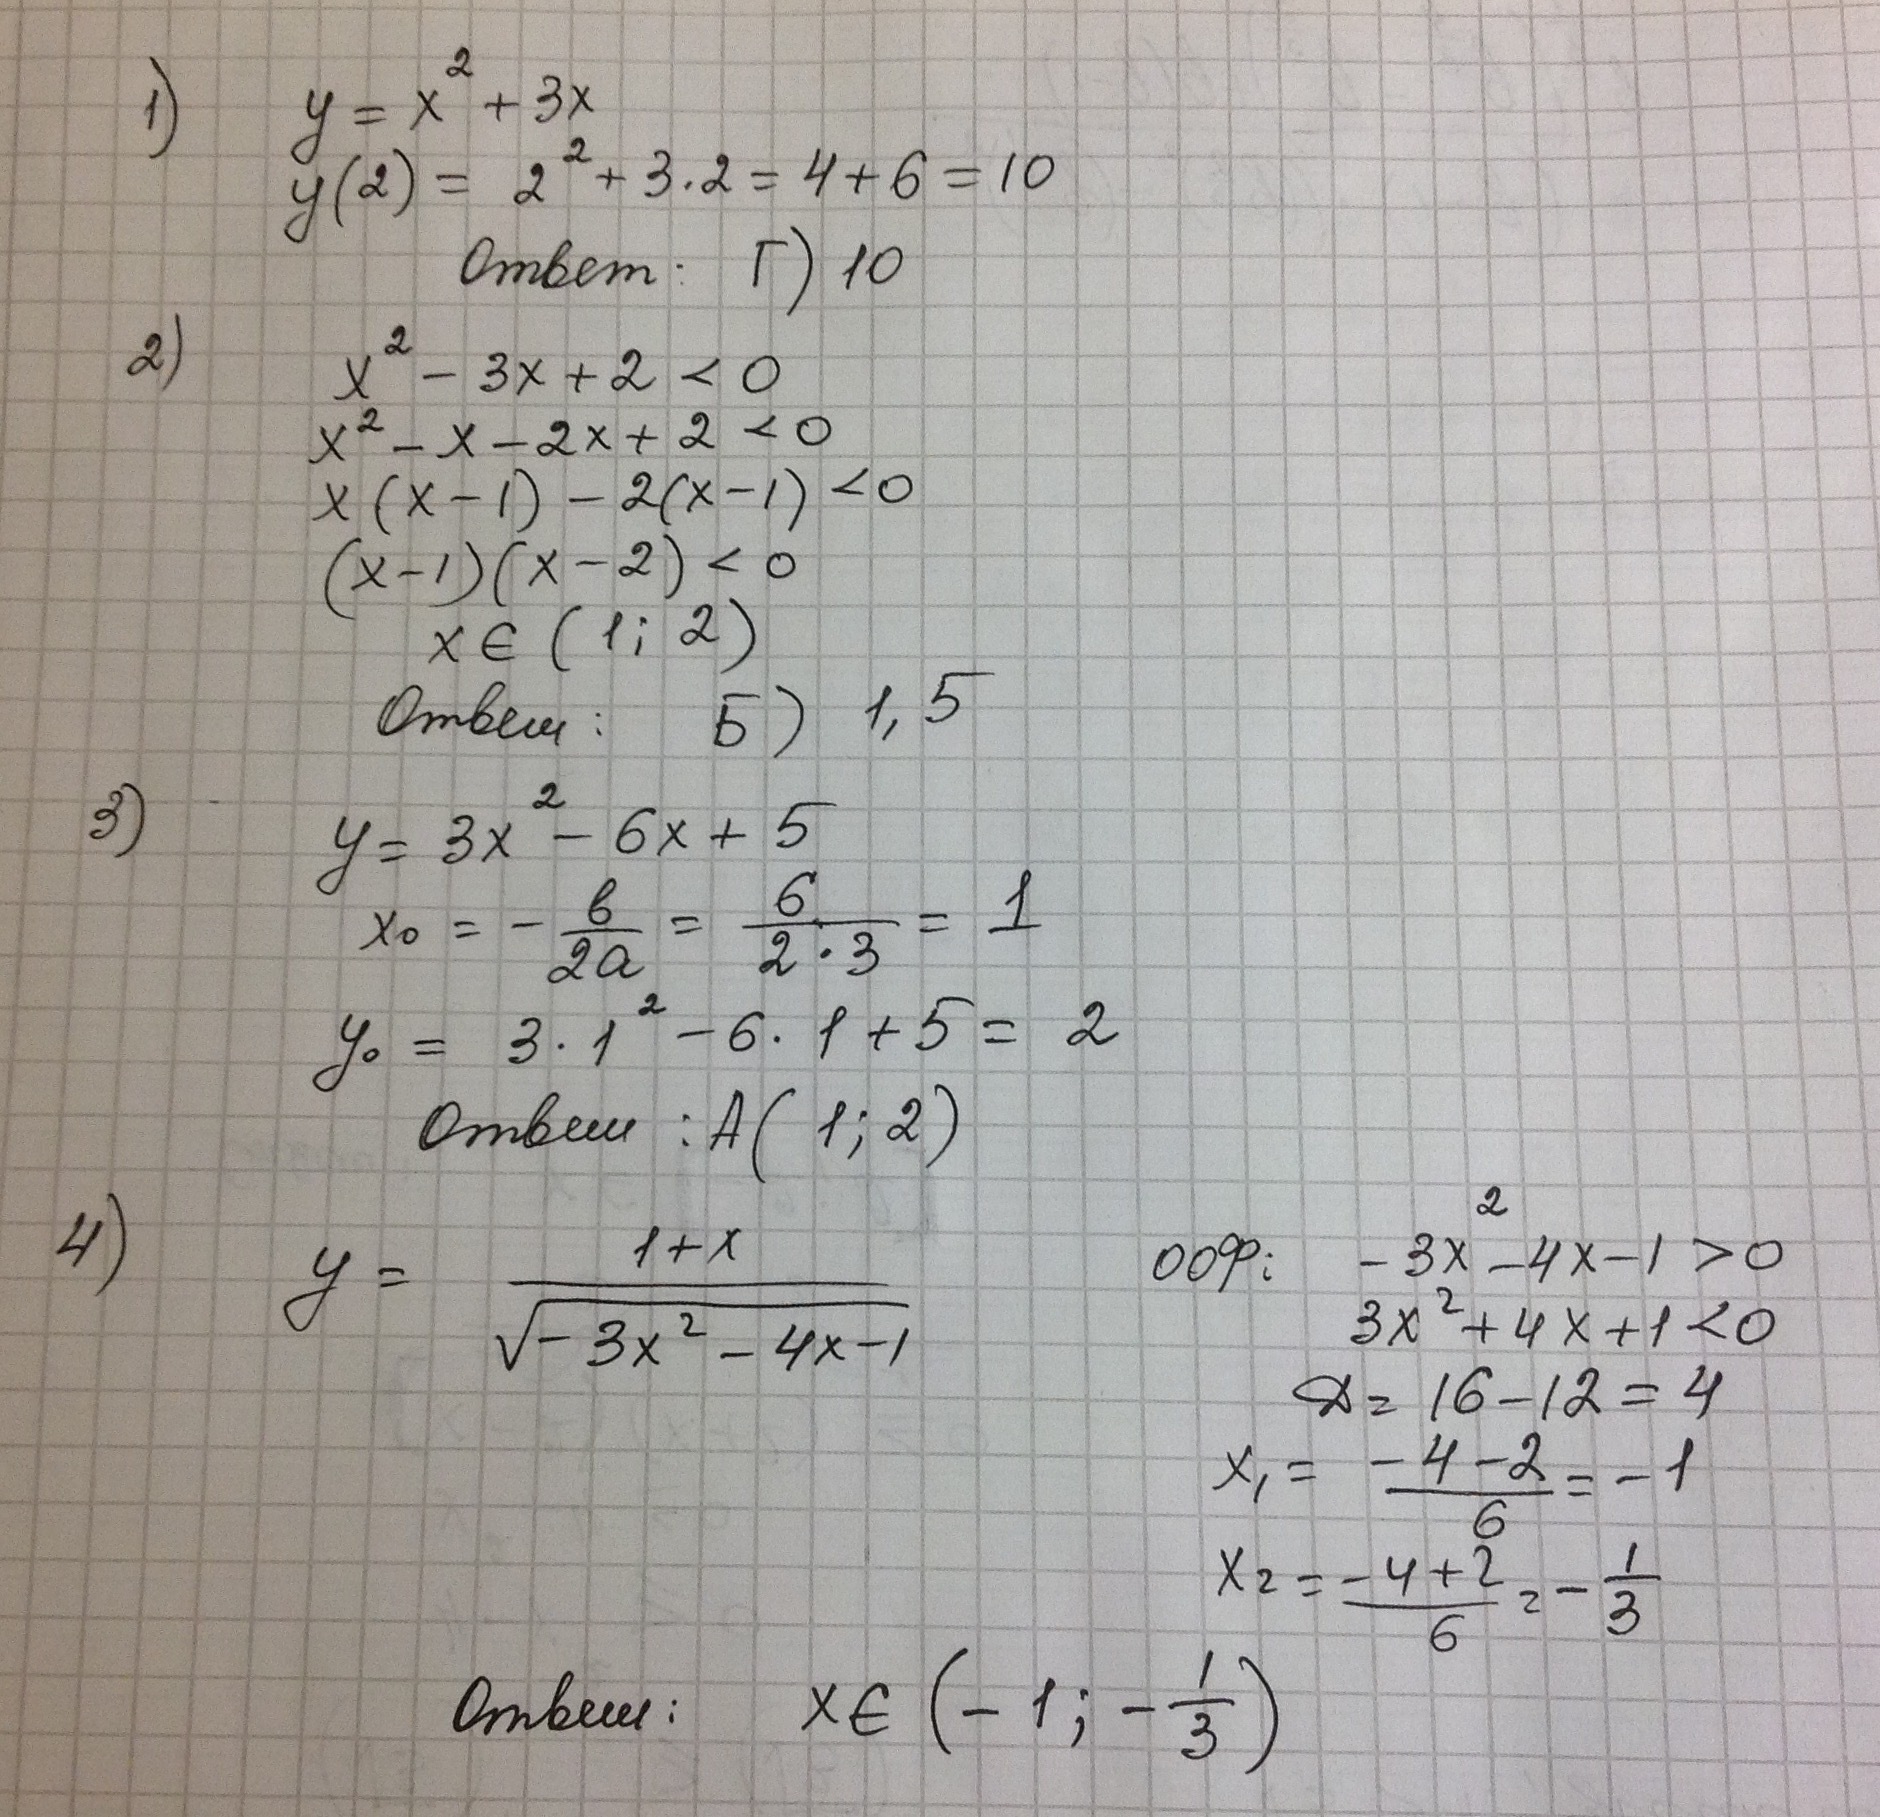 1) y = x² + 3x
y(2) = 2² + 3·2 = 4 + 6 = 10
Ответ: Г) 10
2) x² - 3x + 2 < 0
x² - x - 2x + 2 < 0
x(x - 1) - 2(x - 1) < 0
(x - 1)(x - 2) < 0
x ∈ (1; 2)
Ответ: Б) 1,5
3) y = 3x² - 6x + 5
x₀ = - в/2a = 6/(2·3) = 1
y₀ = 3·1² - 6·1 + 5 = 2
Ответ: A(1; 2)
4) y = (1 + x)/√(-3x² - 4x - 1)
ООФ: -3x² - 4x - 1 > 0
3x² + 4x + 1 < 0
D = 16 - 12 = 4
x₁ = (-4 - 2)/6 = -1
x₂ = (-4 + 2)/6 = -1/3
Ответ: x ∈ (-1; -1/3)